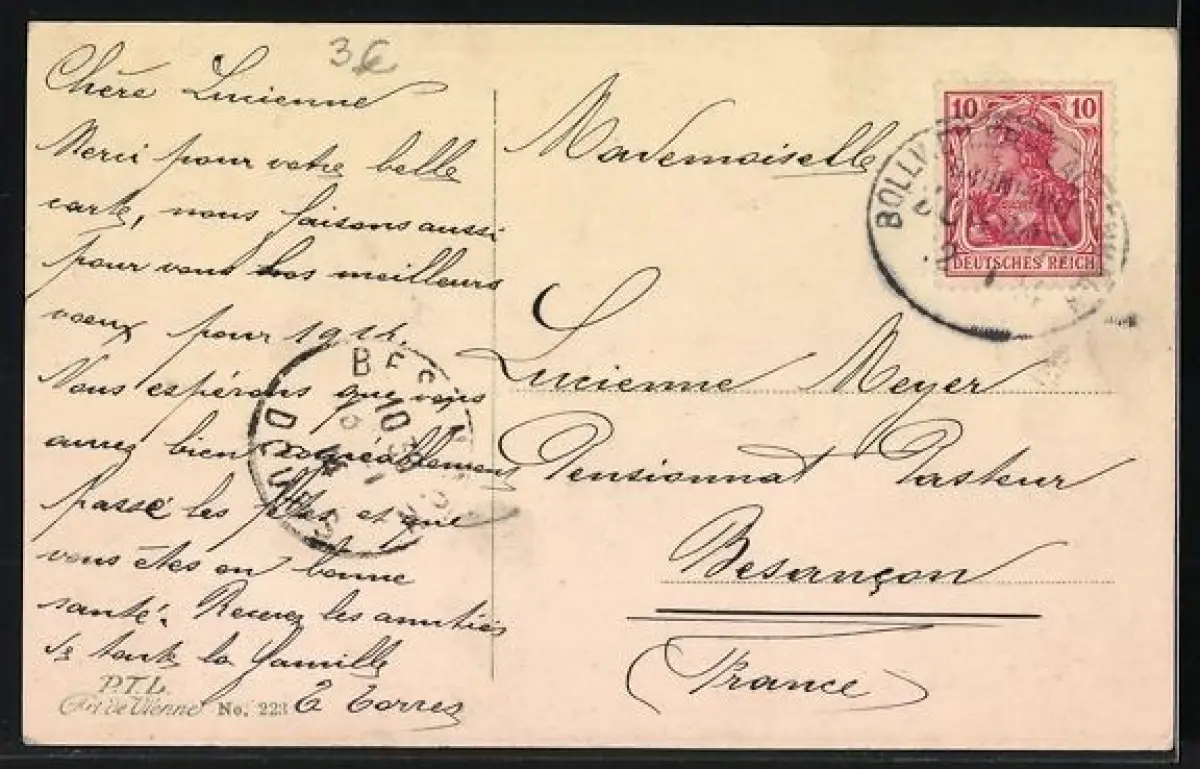 3€
Chère Lucienne
Merci pour votre belle
carte, nous faisons aussi
pour vous nos meilleurs
voeux pour 1914.
Nous espérons que vous
aurez bien agréablement
passé les fêtes et que
vous êtes en bonne
santé. Recevez les amitiés
de toute la famille
E Torres
P.T.L.
Art de Vienne No. 223
Mademoiselle
Lucienne Meyer
Pensionnat Pasteur
Besançon
(France)
10 10
DEUTSCHES REICH
BOLLW
BES
10
DOUBS